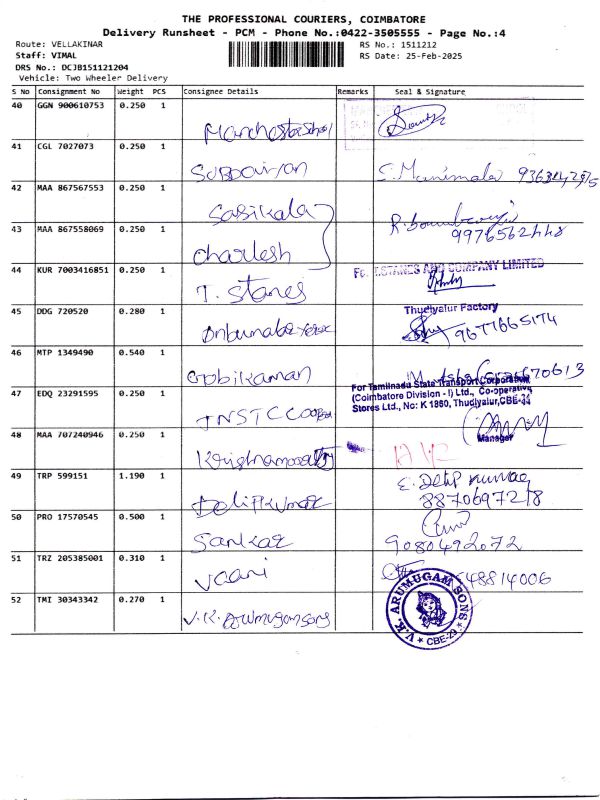 THE PROFESSIONAL COURIERS, COIMBATORE
Delivery Runsheet - PCM - Phone No.:0422-3505555 - Page No.:4
Route: VELLAKINAR RS No.: 1511212
Staff: VIMAL RS Date: 25-Feb-2025
DRS No.: DCJB151121204
Vehicle: Two Wheeler Delivery
S No Consignment No Weight PCS Consignee Details Remarks Seal & Signature
40 GGN 900610753 0.250 1
Manchester School
41 CGL 7027073 0.250 1
S. Manimala
42 MAA 867567553 0.250 1
Sasikala
43 MAA 867558069 0.250 1
9976562448
Charlesh
44 KUR 7003416851 0.250 1 For T.STANES AND COMPANY LIMITED
T. Stanes
45 DDG 720520 0.280 1 Thudiyalur Factory
9677665174
46 MTP 1349490 0.540 1
Gobikaman
47 EDQ 23291595 0.250 1 For Tamilnadu State Transport Corporation
(Coimbatore Division - I) Ltd., Co-operative
Stores Ltd., No: K 1860, Thudiyalur,CBE-34
TNSTC
48 MAA 707240946 0.250 1 Manager
Krishnamoorthy
49 TRP 599151 1.190 1 E. Dilip Kumar
Delipkumar 8870697278
50 PRO 17570545 0.500 1
Sankar 9080492072
51 TRZ 205385001 0.310 1
Vaani 48814006
52 TMI 30343342 0.270 1
V.K. Arumugam sons
V.K. ARUMUGAM SONS
* CBE-29 *